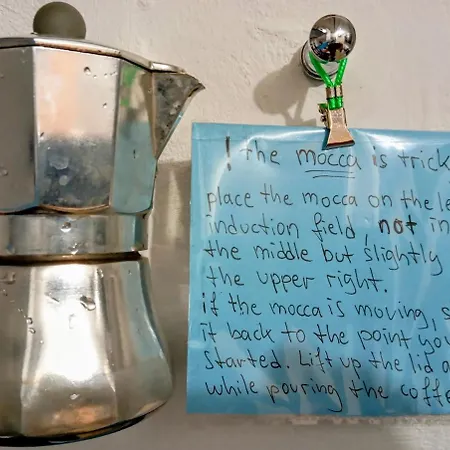 ! the mocca is trick
place the mocca on the le
induction field, not in
the middle but slightly
the upper right.
if the mocca is moving, s
it back to the point you
started. Lift up the lid a
while pouring the coffe